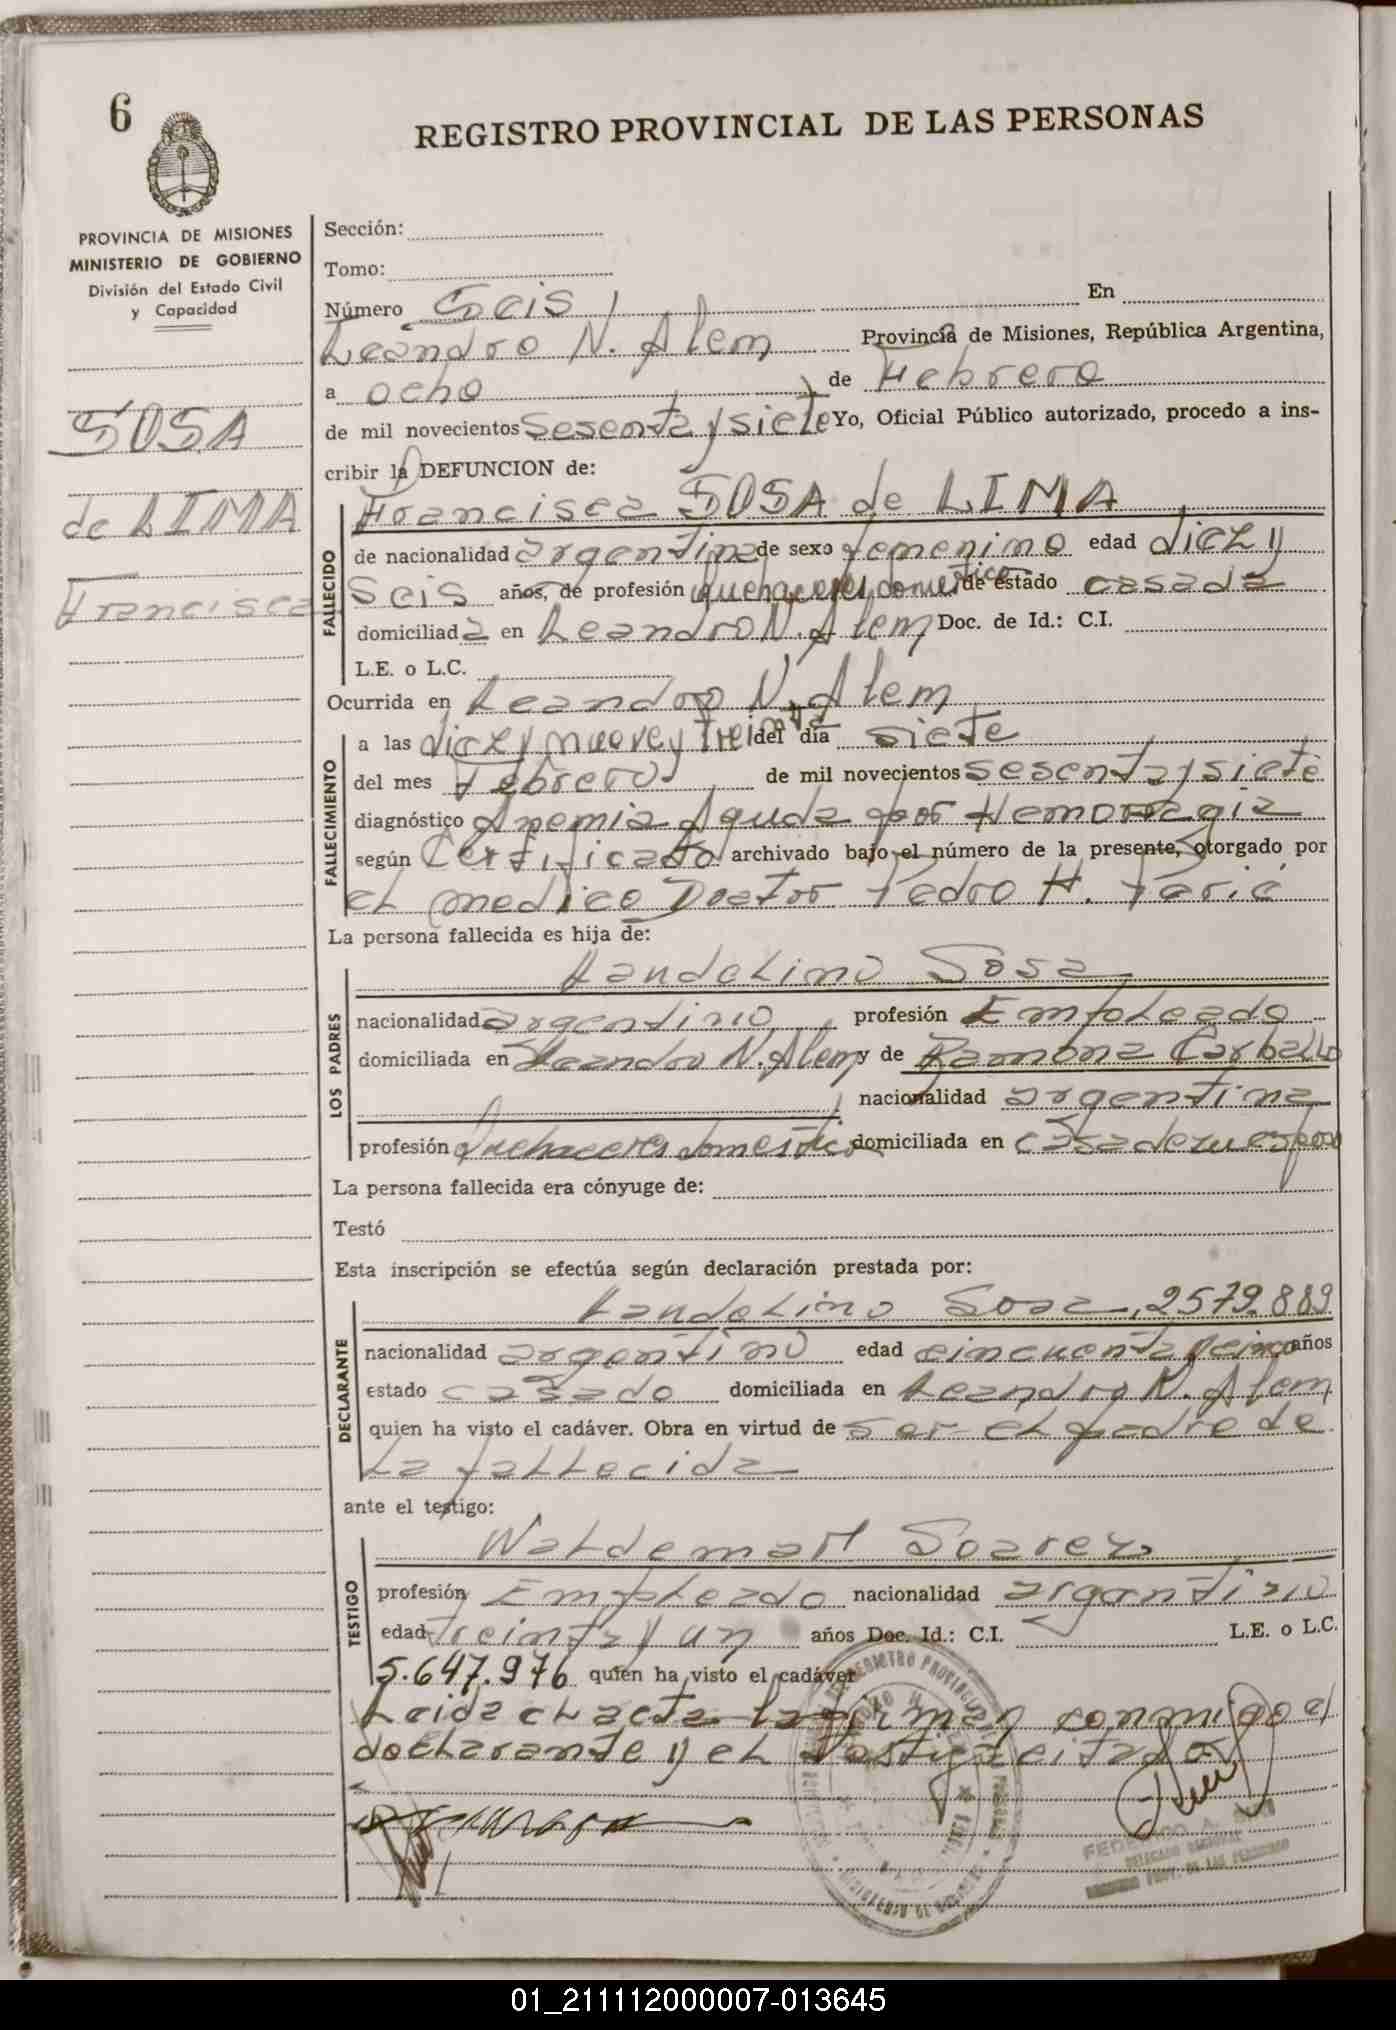 6
REGISTRO PROVINCIAL DE LAS PERSONAS
PROVINCIA DE MISIONES
MINISTERIO DE GOBIERNO
División del Estado Civil
y Capacidad
SOSA
de LIMA
Francisca
Sección:
Tomo:
Número Seis En
Leandro N. Alem Provincia de Misiones, República Argentina,
a ocho de Febrero
de mil novecientos sesenta y siete Yo, Oficial Público autorizado, procedo a ins-
cribir la DEFUNCION de:
FALLECIDO
Francisca SOSA de LIMA
de nacionalidad argentina de sexo femenino edad diez y
seis años, de profesión quehaceres domesticos de estado casada
domiciliada en Leandro N. Alem Doc. de Id.: C.I.
L.E. o L.C.
Ocurrida en Leandro N. Alem
FALLECIMIENTO
a las diez y nueve y treinta del día siete
del mes Febrero de mil novecientos sesenta y siete
diagnóstico Anemia Aguda por Hemorragia
según Certificado archivado bajo el número de la presente, otorgado por
el medico Doctor Pedro H.
La persona fallecida es hija de:
LOS PADRES
Landelino Sosa
nacionalidad argentino profesión Empleado
domiciliada en Leandro N. Alem y de Ramona Carballo
nacionalidad argentina
profesión Quehaceres domesticos domiciliada en casa de su esposo
La persona fallecida era cónyuge de:
Testó
Esta inscripción se efectúa según declaración prestada por:
DECLARANTE
Landelino Sosa, 2579.889
nacionalidad argentino edad cincuenta y cinco años
estado casado domiciliada en Leandro N. Alem
quien ha visto el cadáver. Obra en virtud de ser el padre de
la fallecida
ante el testigo:
TESTIGO
Waldemar Soarez
profesión Empleado nacionalidad argentino
edad treinta y un años Doc. Id.: C.I. L.E. o L.C.
5.647.976 quien ha visto el cadáver
Leida el acta la firman conmigo el
declarante y el testigo citado
01_211112000007-013645